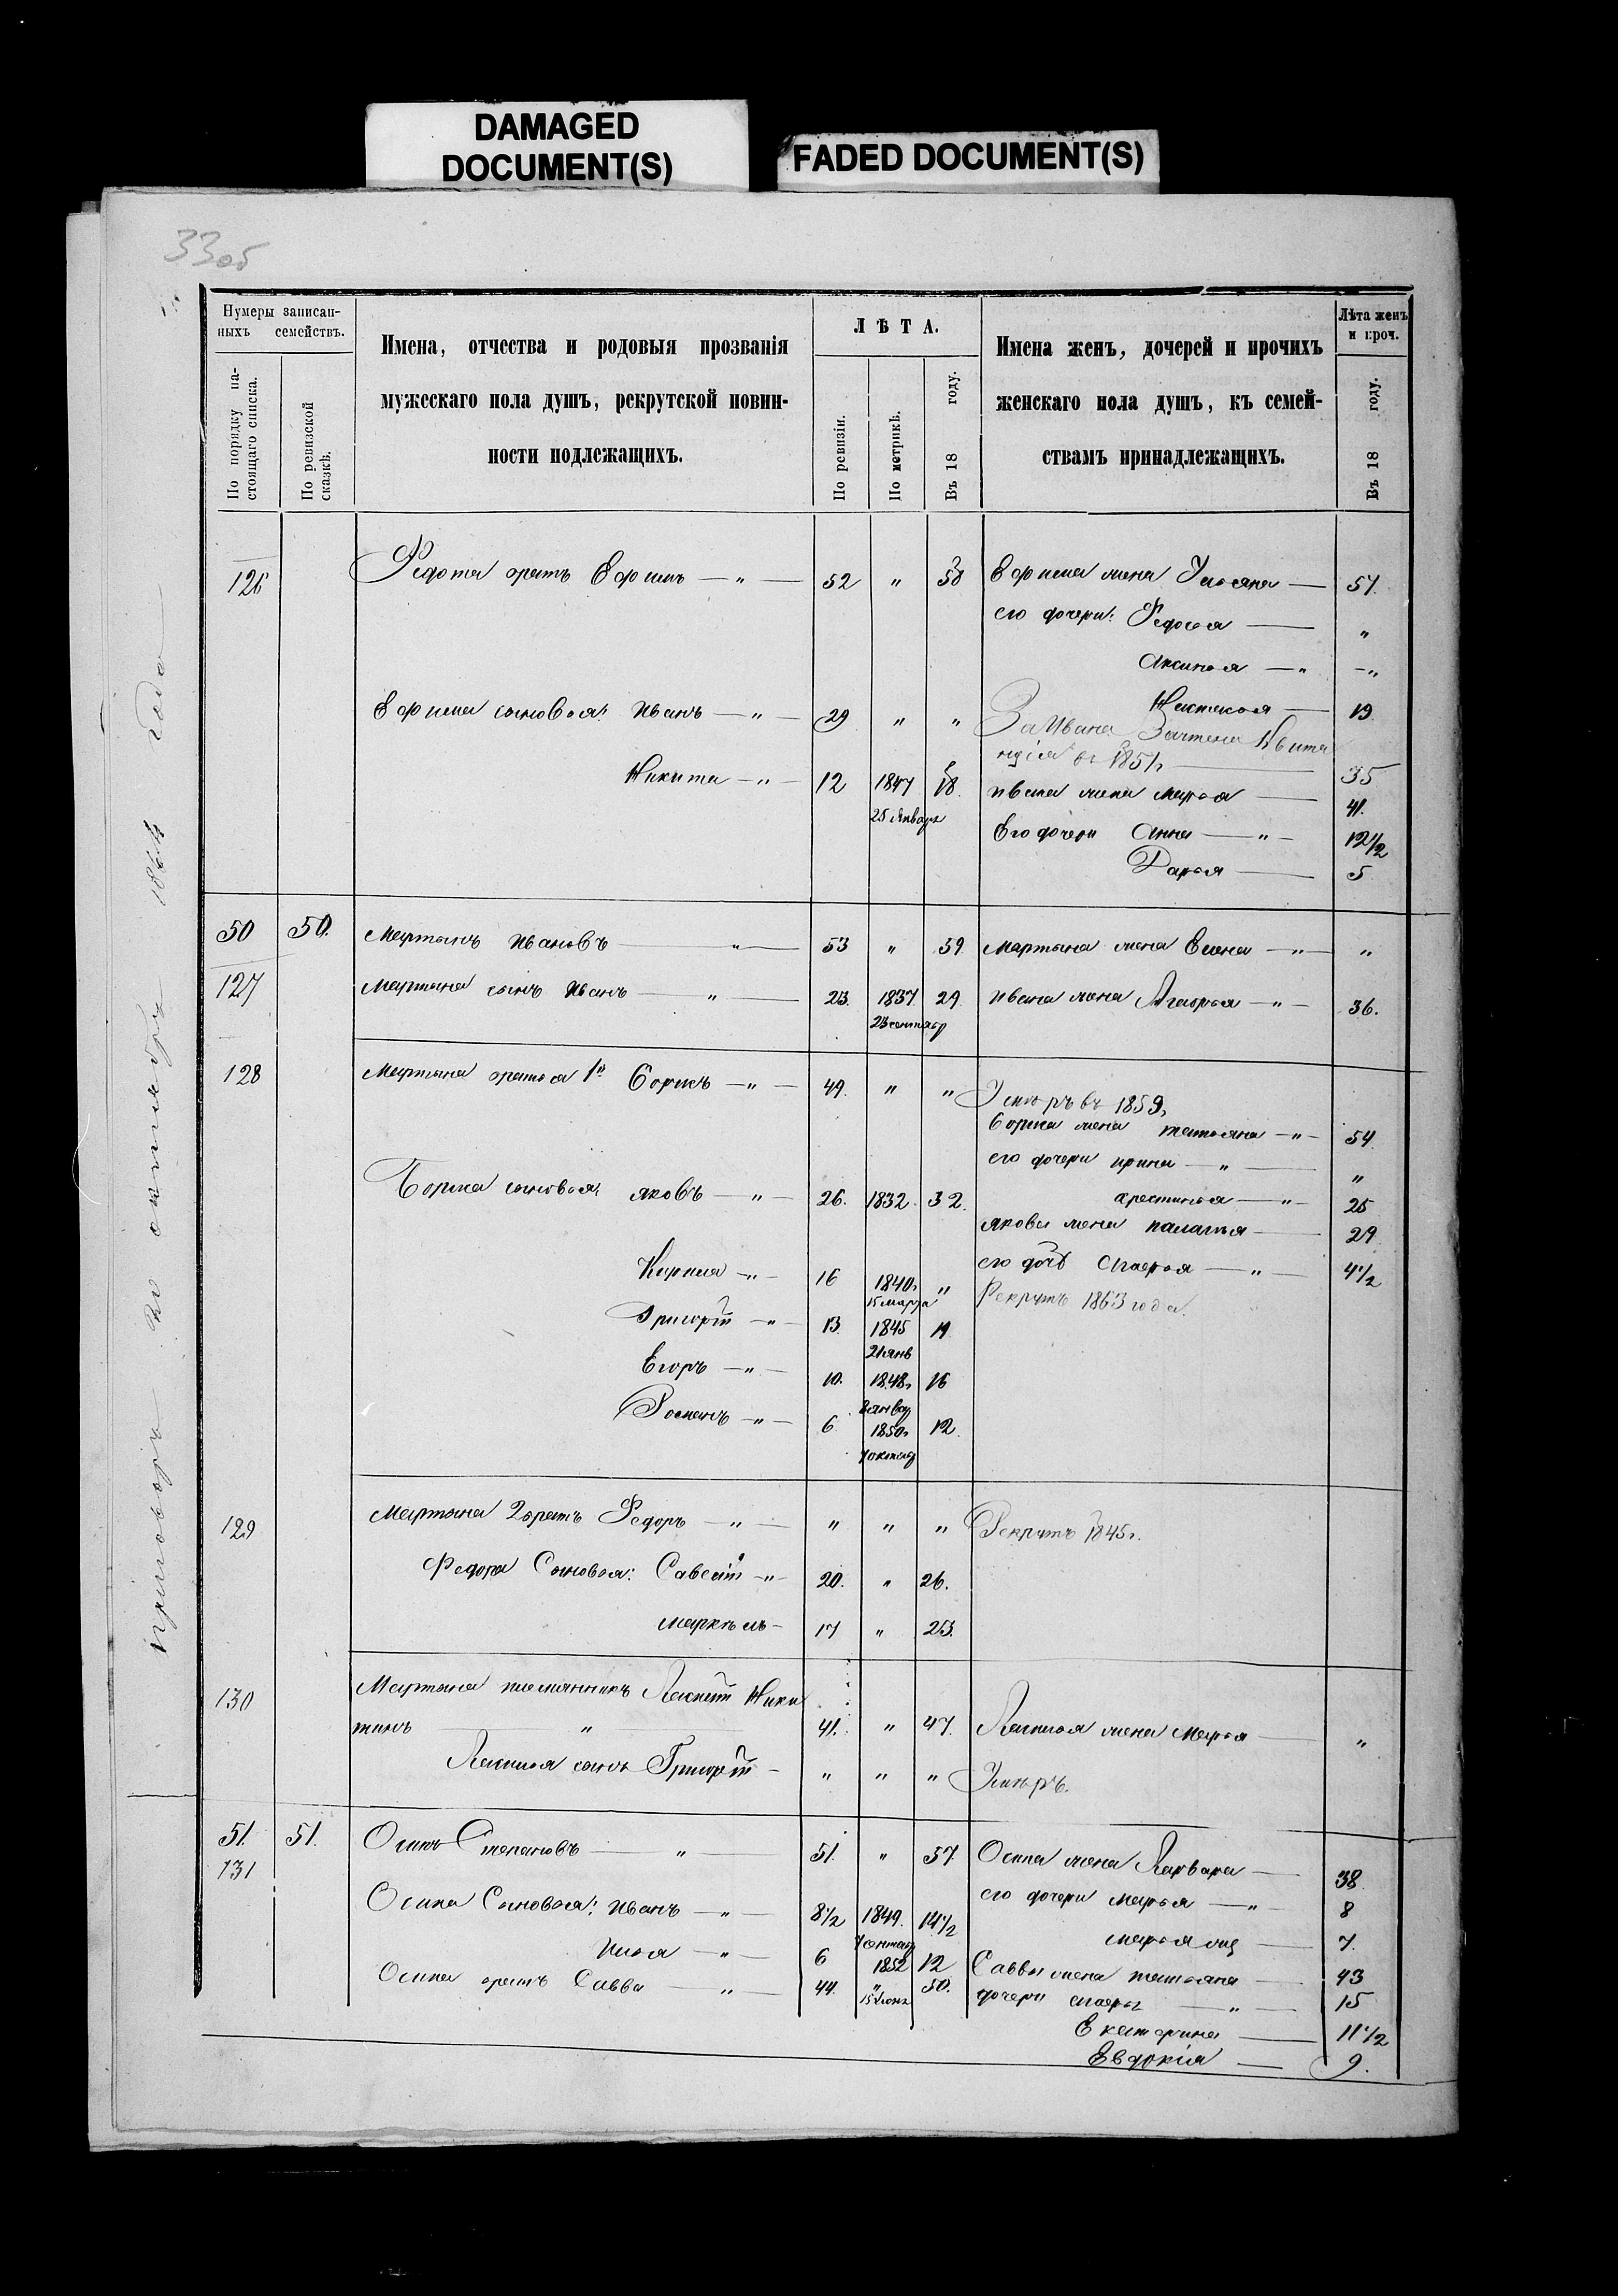 DAMAGED
DOCUMENT(S)
FADED DOCUMENT(S)
33об
Нумеры записан-
ныхъ семействъ.
По порядку на-
стоящаго списка.
По ревизской
сказкѣ.
Имена, отчества и родовыя прозванія
мужескаго пола душъ, рекрутской повин-
ности подлежащихъ.
ЛѢТА.
По ревизіи.
По метрикѣ.
Въ 18 году.
Имена женъ, дочерей и прочихъ
женскаго пола душъ, къ семей-
ствамъ принадлежащихъ.
Лѣта женъ
и проч.
Въ 18 году.
126 Федота братъ Ефимъ — " — 52 " 58 Ефима жена Ульяна — 57.
его дочери: Федосья — "
Аксинья — " — "
Настасья — 19
Ефима сыновья: Иванъ — " — 29 " " За Ивана Зачтена Квита
нція въ 1851г — 35
Никита — " — 12 1847 18. Ивана жена Марья — 41.
25 Января
Его дочери Анна — " — 12 1/2
Дарья — 5
50 50. Мартынъ Ивановъ — " — 53 " 59. Мартына жена Елена — " — "
127 Мартына сынъ Иванъ — " — 23. 1837 29. Ивана жена — " — 36.
23 сентябр
128 Мартына братья 1й Борисъ — " — 49. " " Умѣръ въ 1859г
Бориса жена татьяна — " — 54.
его дочери ирина — " — "
Бориса сыновья: яковъ — " — 26. 1832. 32. хрестинья — " — 25
якова жена палагья — 29
его дочь — " — 4 1/2
— " — 16 1840г " Рекрутъ 1863 года.
15 марта
Григорій — " — 13. 1845 19
21 янв
Егоръ — " — 10. 1848г 16
январ
Романъ — " — 6 1850г 12.
7 октяб
129 Мартына 2 братъ Федоръ — " — " " " Рекрутъ 1845г.
Федора Сыновья: Савелій — " — 20. " 26.
маркѣлъ — 17 " 23.
130 Мартына племянникъ Ники
тинъ — " — 41. " 47. жена Марья — "
сынъ Григорій — " " " Умѣръ.
51. 51. Осипъ Степановъ — " — 51. " 57. Осипа жена Варвара — 38.
131 его дочери Марья — " — 8
Осипа Сыновья: Иванъ — " — 8 1/2 1849. 14 1/2
Марья — 7.
Илья — " — 6 1852 12 Саввы жена татьяна — 43
Осипа братъ Савва — " — 44. " 50. дочери — " — 15
15 Июня
Екатерина — 11 1/2
Евдокія — 9.
приговоръ 20 октября 1864 года